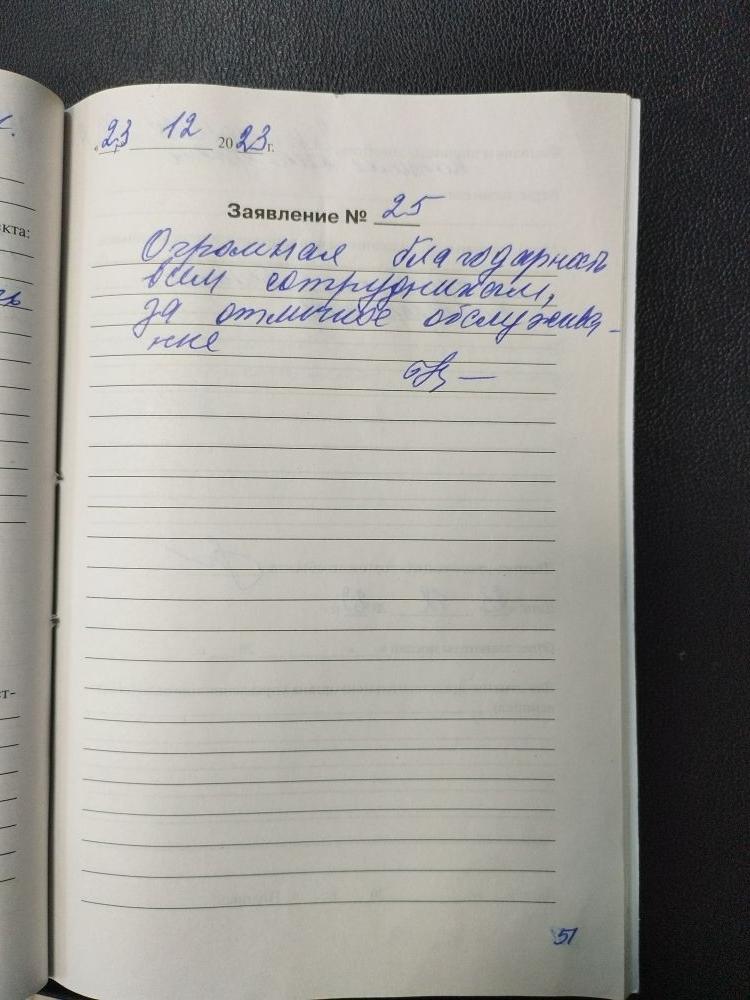 «23 12 2023 г.
Заявление № 25
Огромная благодарность
всем сотрудникам,
за отличное обслужива-
ние
кта:
ст-
51